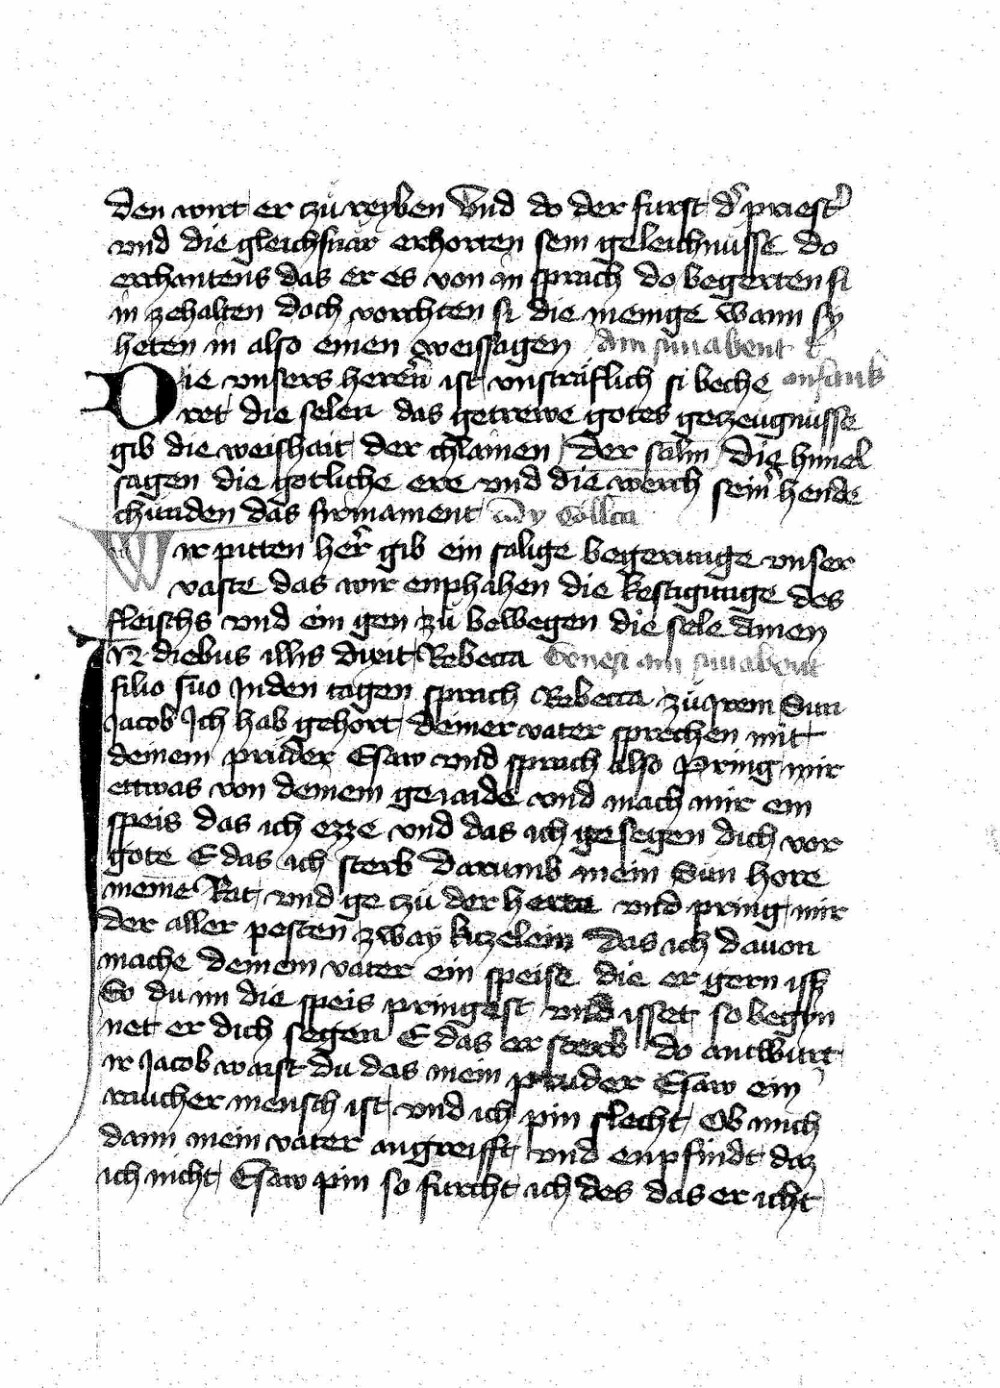 den wirt er czu reyben Vnd do der furst dˀ priestˀ
vnd die gleichsnar erhorten sein geleichnusse do
erchantens das er es von in sprach do begerten si
in zehalten doch vorchten si die menige wann sy
heten in also einen weissagen Am sunabent dˀ
Die vnsers herrn ist vnstraflich si beche anfank
ret die selen das getrewe gotes geczeugnusse
gib die weishait der chlainen der salm Die himel
sagen die gotliche ere vnd die werch seinˀ hende
chunden das firmament Coll̄ca
Wir pitten herˀ gib ein salige begerunge vnser
vaste das wir enphahen die kestigunge des
fleischs vnd ein gen zu bewegen die sele Amen
IN diebus illis dixit Rebecca Genesi am sunabent
filio suo In den tagen sprach Rebecca zu Irem Sun
Jacob Ich hab gehort deiner vater sprechen mit
deinem pruder Esaw vnd sprach also Pring mir
ettwas von deinem geiaide vnd mach mir ein
speis das ich ezze vnd das ich gesegen dich vor
gote E das ich sterb Darumb mein Sun hore
meine Rat vnd ge czu der herta vnd pring mir
der aller pesten zway kizelein das ich dauon
mache deinem vater ein speise die er gern iss
So du im die speis pringest vnd isset so begyn
net er dich segen E das er sterb do antwurt
ir Jacob waist du das mein pruder Esaw ein
raucher mensch ist vnd ich pin slecht Ob mich
dann mein vater angreifft vnd enpfindt daz
ich nicht Esaw pin so furcht ich des das er icht